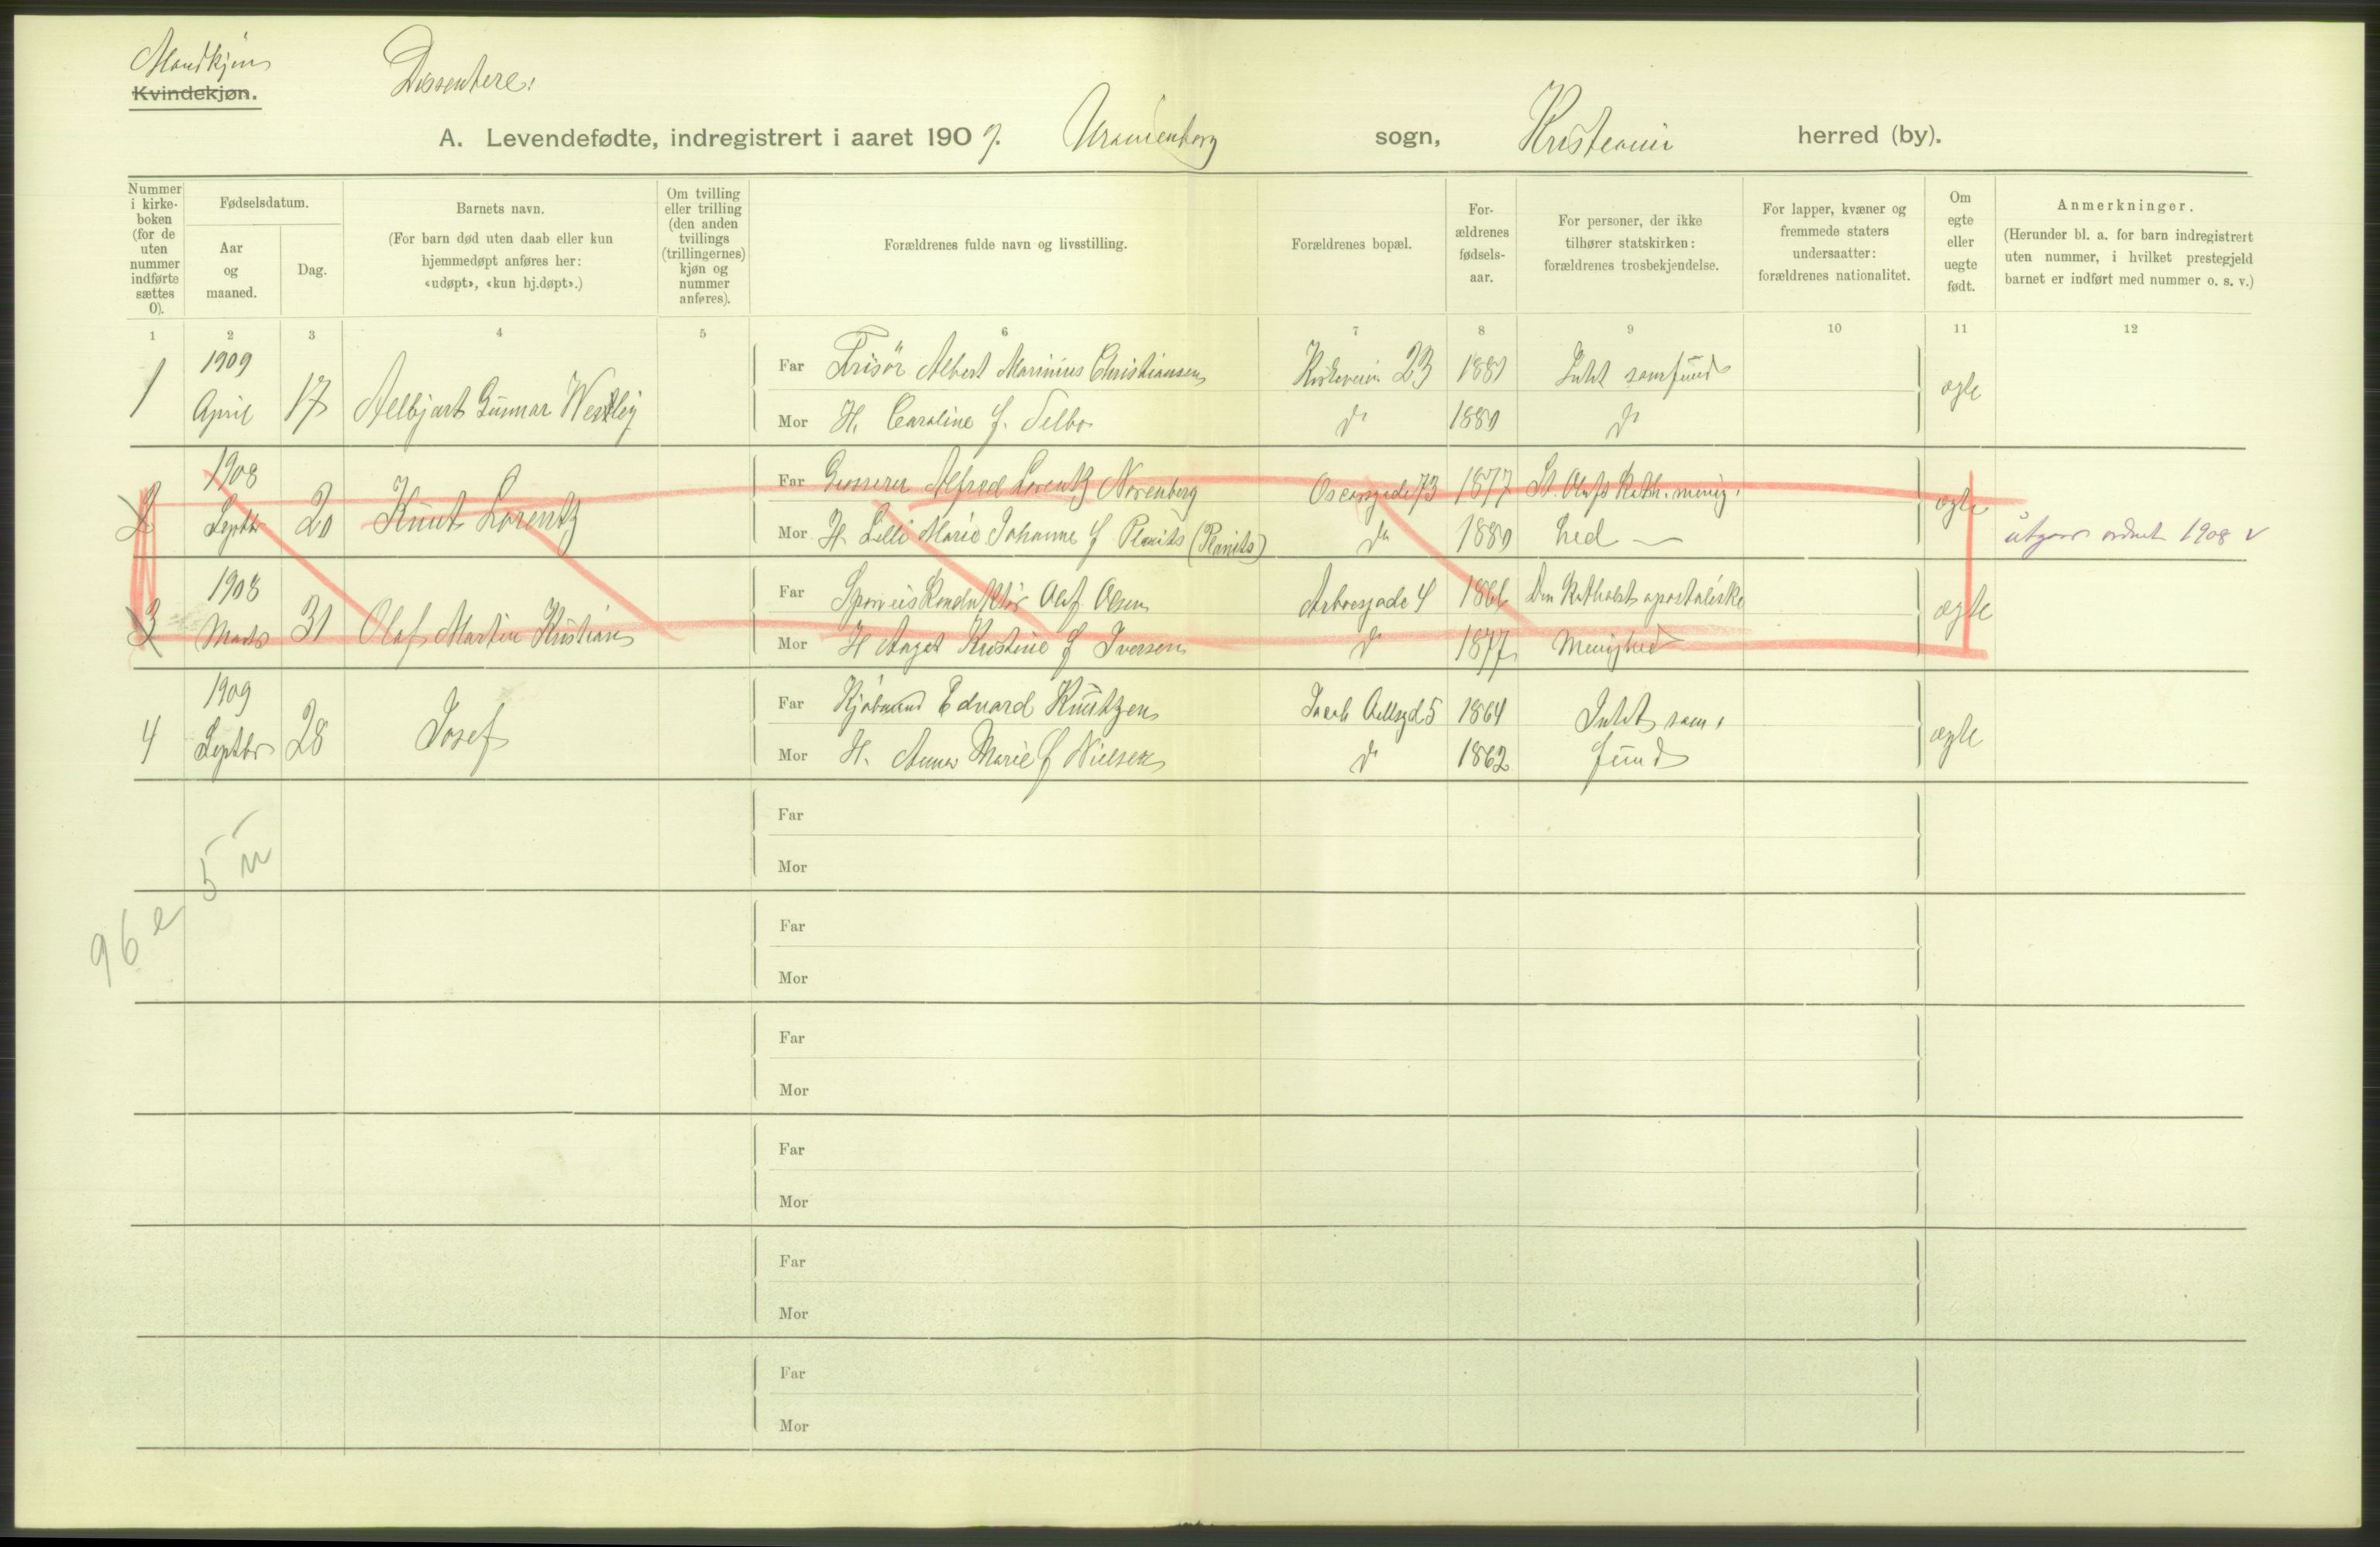 Mandkjøn
Kvindekjøn.
Dissentere.
A. Levendefødte, indregistrert i aaret 1909. Uranienborg sogn, Kristiania herred (by).
Nummer i kirke-boken (for de uten nummer indførte sættes 0).
Fødselsdatum.
Aar og maaned.
Dag.
Barnets navn.
(For barn død uten daab eller kun hjemmedøpt anføres her: «udøpt», «kun hj.døpt».)
Om tvilling eller trilling (den anden tvillings (trillingernes) kjøn og nummer anføres).
Forældrenes fulde navn og livsstilling.
Forældrenes bopæl.
For-ældrenes fødsels-aar.
For personer, der ikke tilhører statskirken: forældrenes trosbekjendelse.
For lapper, kvæner og fremmede staters undersaatter: forældrenes nationalitet.
Om egte eller uegte født.
Anmerkninger.
(Herunder bl. a. for barn indregistrert uten nummer, i hvilket prestegjeld barnet er indført med nummer o. s. v.)
1 2 3 4 5 6 7 8 9 10 11 12
1 1909 April 17 Gunnar
Far Frisör Albert Marinius Christiansen Kirkeveien 23 1881 Intet samfund ægte
Mor H. Caroline f. Selbo do 1880 do
2 1908 Septbr 20 Knut Lorentz
Far Grosserer Alfred Lorentz Norenberg Oscarsgade 73 1877 St. Olafs Kath. menig. ægte
Mor H. Lilli Marie Johanne f Planits (Planits) do 1880 hed
utgaar 1908
3 1908 Marts 31 Olaf Martin Kristian
Far Sporveiskonduktör Olaf Olsen 4 1866 Den Katholsk apostoliske ægte
Mor H Aagot Kristine f Iversen do 1877 Menighed
4 1909 Septbr 28 Josef
Far Kjöbmand Edvard Knutzen Jacob Aallsgd 5 1864 Intet sam- ægte
Mor H. Anna Marie f Nielsen do 1862 fund
Far
Mor
5
96
Far
Mor
Far
Mor
Far
Mor
Far
Mor
Far
Mor